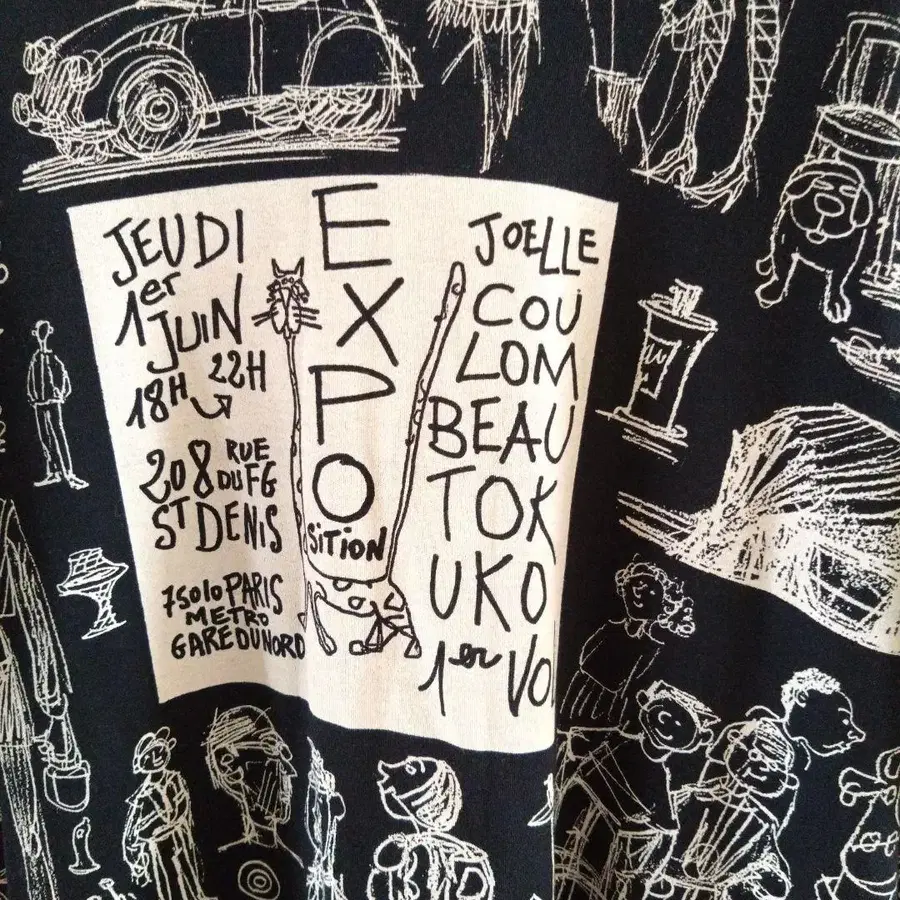 JEUDI
1er
JUIN
18H 22H
208 RUE
DU FG
ST DENIS
75010 PARIS
METRO
GARE DU NORD
E
X
P
O
SITION
JOELLE
COU
LOM
BEAU
TOK
UKO
1er VO